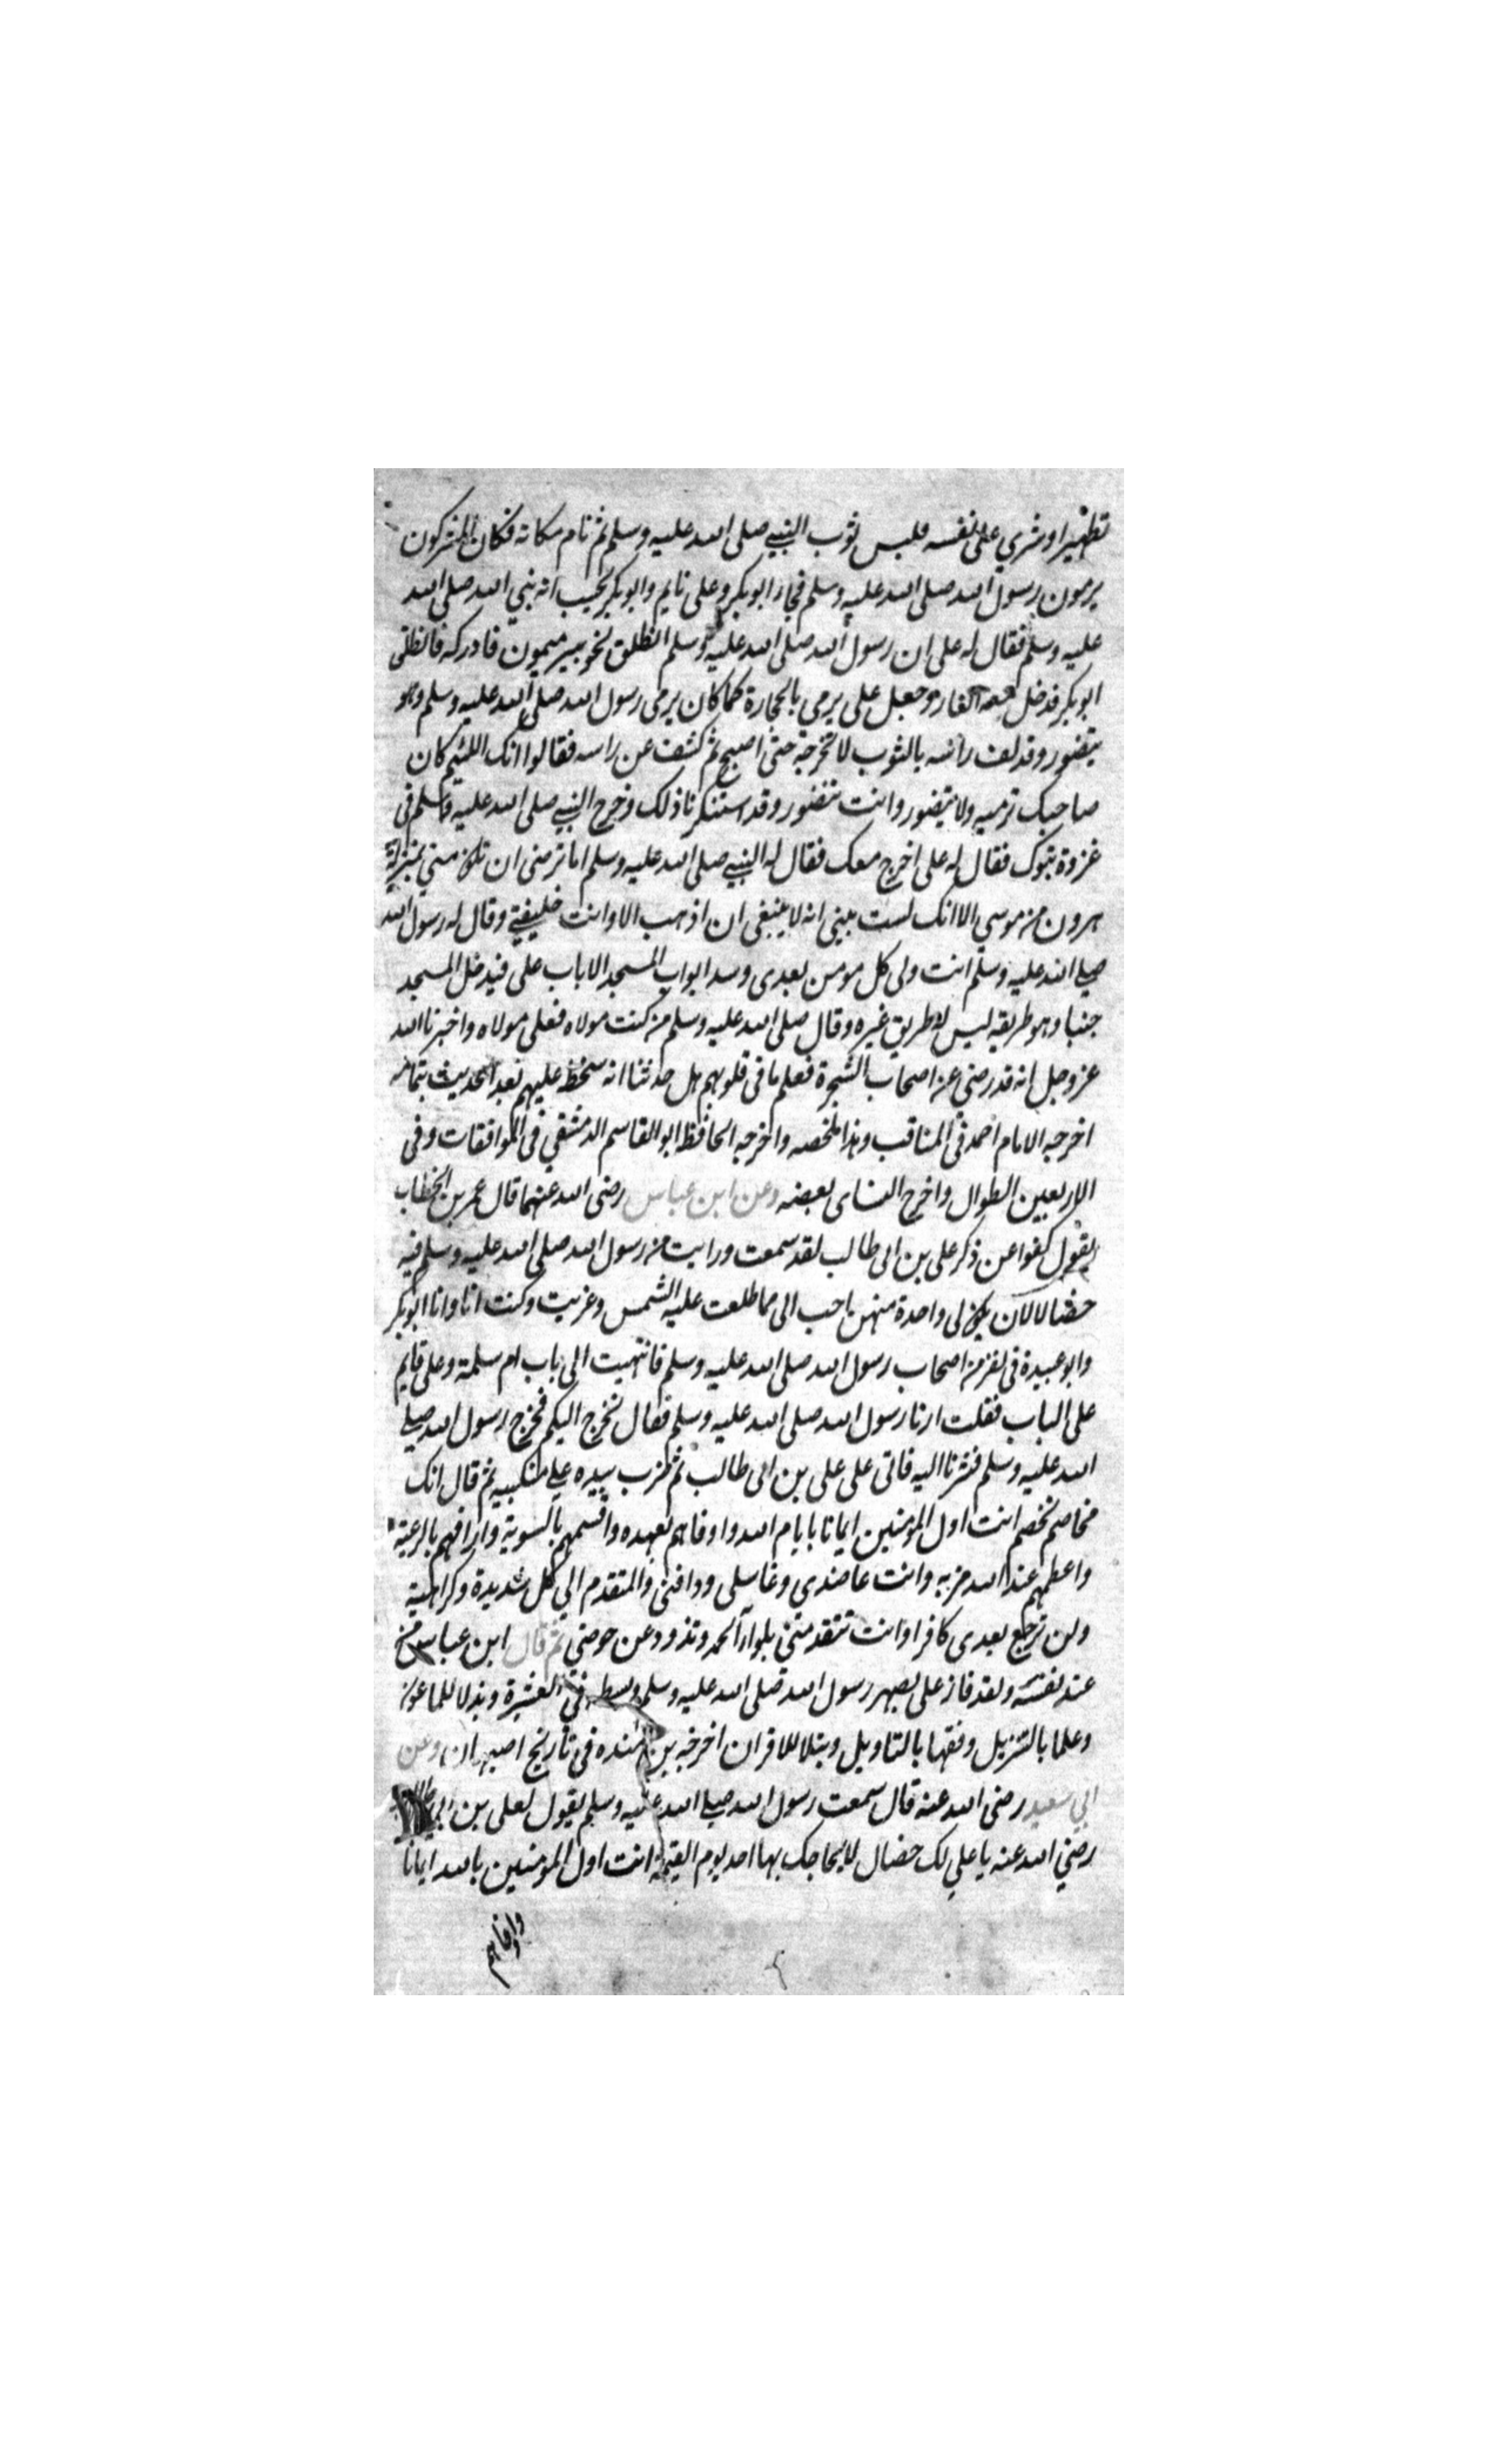 تطهيرا وشري علي نفسه فلبس ثوب النبي صلى الله عليه وسلم ثم نام مكانه فكان المشركون
يرمون رسول الله صلى الله عليه وسلم فجاء ابوبكر وعلى نايم وابوبكر يحسب انه نبي الله صلى الله
عليه وسلم فقال له على ان رسول الله صلى الله عليه وسلم انطلق نحو بير ميمون فادركه فانطلق
ابوبكر فدخل معه الغار وجعل على يرمي بالحجارة كما كان يرمى رسول الله صلى الله عليه وسلم وهو
يتضور وقد لف راسه بالثوب لا يخرجه حتى اصبح ثم كشف عن راسه فقالوا انك اللئيم كان
صاحبك ترميه ولا يتضور وانت تتضور وقد استنكرنا ذلك وخرج النبي صلى الله عليه وسلم فى
غزوة تبوك فقال له على اخرج معك فقال له النبي صلى الله عليه وسلم اما ترضى ان تكون مني بمنزلة
هرون من موسي الا انك لست بنبي انه لا ينبغى ان اذهب الا وانت خليفتي وقال له رسول الله
صلي الله عليه وسلم انت ولى كل مومن بعدى وسد ابواب المسجد الا باب على فيدخل المسجد
جنبا وهو طريقه ليس له طريق غيره وقال صلى الله عليه وسلم من كنت مولاه فعلى مولاه واخبرنا الله
عز وجل انه قد رضي عن اصحاب الشجرة فعلم ما فى قلوبهم هل حدثنا انه سخط عليهم بعد الحديث بتمامه
اخرجه الامام احمد فى المناقب وهذا ملخصه واخرجه الحافظ ابو القاسم الدمشقي فى الموافقات وفى
الاربعين الطوال واخرج النساى بعضه وعن ابن عباس رضى الله عنهما قال عمر بن الخطاب
يقول كفوا عن ذكر على بن ابى طالب لقد سمعت ورايت من رسول الله صلى الله عليه وسلم فيه
خصالا لان يكون لى واحدة منهن احب الى مما طلعت عليه الشمس وغربت وكنت انا وانا ابوبكر
وابو عبيدة فى نفر من اصحاب رسول الله صلى الله عليه وسلم فانتهيت الى باب ام سلمة وعلى قايم
على الباب فقلت ارنا رسول الله صلى الله عليه وسلم فقال يخرج اليكم فخرج رسول الله صلي
الله عليه وسلم فثرنا اليه فاتى على على بن ابى طالب ثم ضرب بيده علي منكبيه ثم قال انك
مخاصم تخصم انت اول المؤمنين ايمانا بايام الله واوفاهم بعهده واقسمهم بالسوية وارافهم بالرعية
واعظمهم عند الله مزيه وانت عاضدى وغاسلى ودافنى والمتقدم الي كل شديدة وكراهية
ولن ترجع بعدى كافرا وانت تتقدمنى بلواء الحمد وتذود عن حوضي ثم قال ابن عباس من
عند نفسه ولقد فاز على بصهر رسول الله صلى الله عليه وسلم وبسطه في العشيرة وبذلا للماعون
وعلما بالتنزيل وفقها بالتاويل ونبلا للاقران اخرجه بن منده فى تاريخ اصبهان وعن
ابي سعيد رضى الله عنه قال سمعت رسول الله صلي الله عليه وسلم يقول لعلى بن ابي
رضي الله عنه يا علي لك خصال لا يحاجك بها احد يوم القيمة انت اول المؤمنين بالله ايمانا
واوفاهم